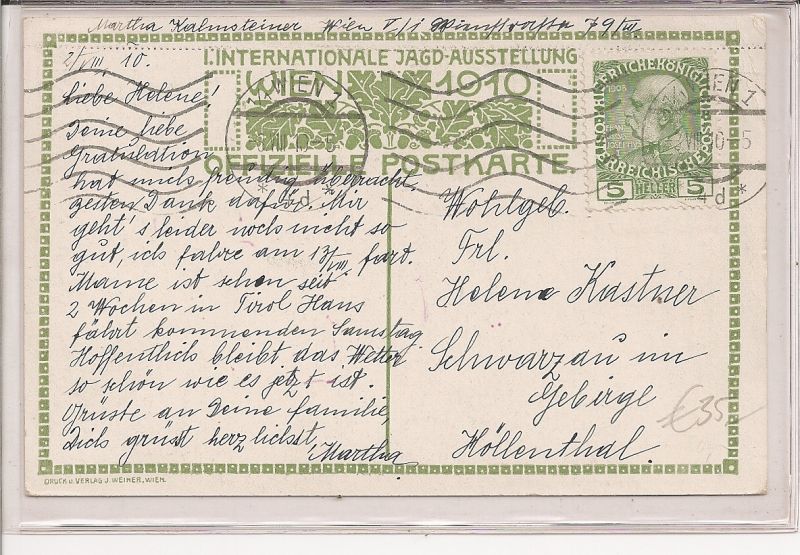 Martha Kalmsteiner Wien V/1 79/III
2/VIII 10.
I. INTERNATIONALE JAGD-AUSSTELLUNG
WIEN 1910
OFFIZIELLE POSTKARTE.
Liebe Helene!
Deine liebe
Gratulation
hat mich freudig überrascht,
besten Dank dafür. Mir
geht's leider noch nicht so
gut, ich fahre am 13/VIII. fort.
Mame ist schon seit
2 Wochen in Tirol Hans
fährt kommenden Samstag.
Hoffentlich bleibt das Wetter
so schön wie es jetzt ist.
Grüsse an Deine Familie
Dich grüsst herzlichst
Martha
WIEN 1
4d
WIEN 1
4d
1908
KAISERLICHE KÖNIGLICHE
ÖSTERREICHISCHE POST
5 HELLER 5
Wohlgeb.
Frl.
Helene Kastner
Schwarzau im
Gebirge
Höllenthal.
€35,-
DRUCK U. VERLAG J. WEINER, WIEN.